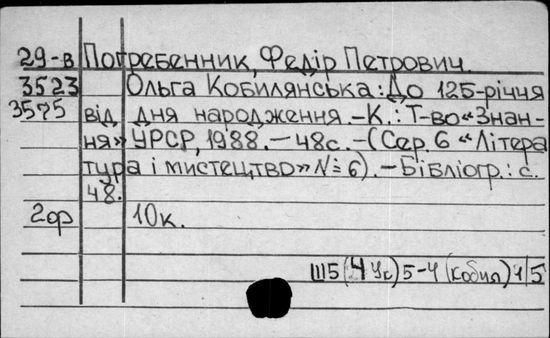 29-в Погребенник, Федір Петрович.
3523 Ольга Кобилянська: До 125-річчя
3575 від дня народження.-К.: Т-во «Знан-
ня» УРСР, 1988.-48с.-(Сер. 6 «Літера
тура і мистецтво» №6).-Бібліогр.: с.
48.
2ор 10к.
Ш5(4Ук)5-4(Кобил)4/5